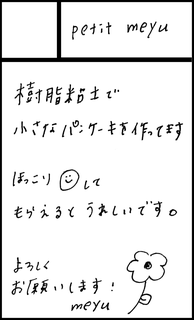 petit meyu
樹脂粘土で
小さなパンケーキを作ってます
ほっこり して
もらえると うれしいです。
よろしく
お願いします!
meyu